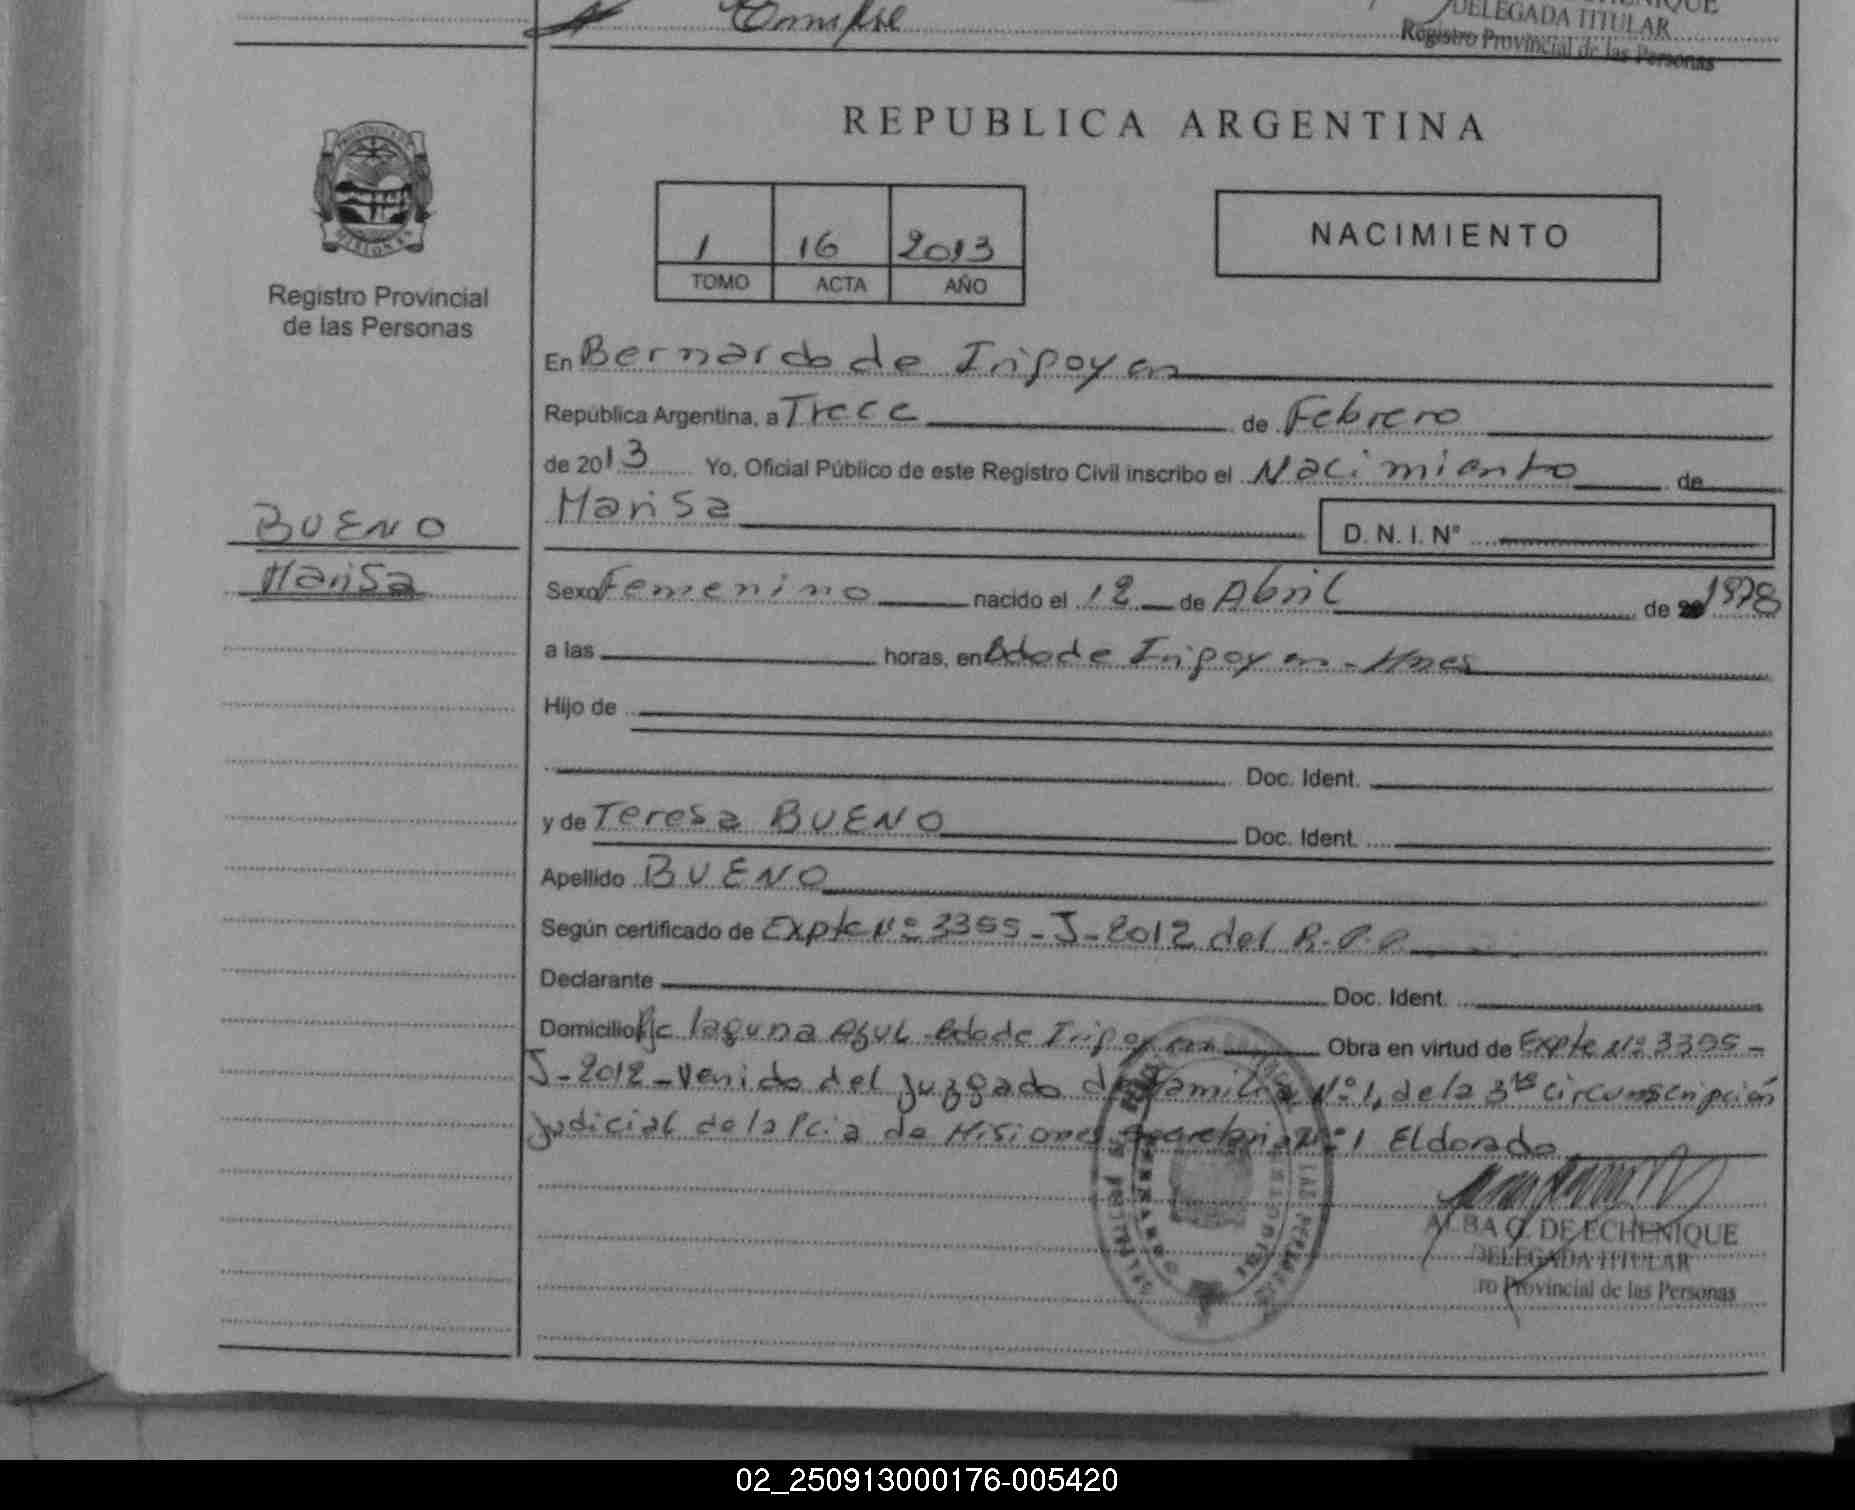 DELEGADA TITULAR
Registro Provincial de las Personas
REPUBLICA ARGENTINA
1 16 2013
TOMO ACTA AÑO
NACIMIENTO
Registro Provincial
de las Personas
En Bernardo de Irigoyen
República Argentina, a Trece de Febrero
de 2013 Yo, Oficial Público de este Registro Civil inscribo el Nacimiento de
Marisa D. N. I. N°
BUENO
Marisa
Sexo Femenino nacido el 12 de Abril de 1978
a las horas, en Bdo de Irigoyen - Mnes
Hijo de
Doc. Ident.
y de Teresa BUENO Doc. Ident.
Apellido BUENO
Según certificado de Expte Nº 3355-J-2012 del R.P.P.
Declarante Doc. Ident.
Domicilio Pje laguna Azul Bdo de Irigoyen Obra en virtud de Expte Nº 3355-
J-2012-Venido del Juzgado de Familia Nº 1, de la 3ra circunscripción
Judicial de la Pcia de Misiones secretaria Nº 1 Eldorado
ALBA G. DE ECHENIQUE
DELEGADA TITULAR
ro Provincial de las Personas
02_250913000176-005420